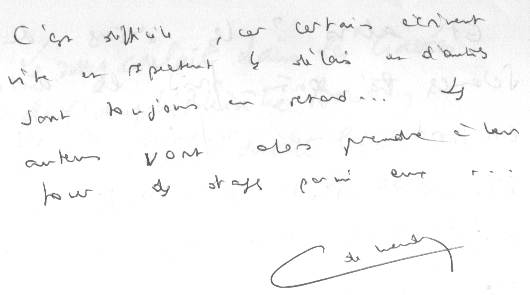 C'est difficile, car certains écrivent
vite et respectent les délais et d'autres
sont toujours en retard... Les
auteurs vont alors prendre à leur
tour des otages parmi eux ...